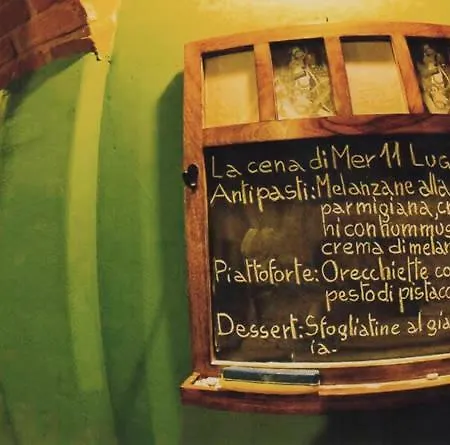 La cena di Mer 11 Lug
Antipasti: Melanzane alla
parmigiana, cr
ni con hummus
crema di melan
Piattoforte: Orecchiette co
pesto di pistacc
Dessert: Sfogliatine al gia
ia.